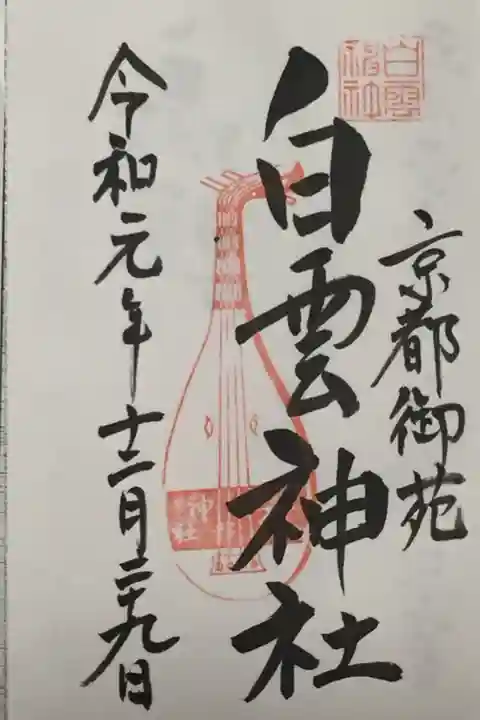 京都御苑
白雲神社
白雲
神社
令和元年十二月二十九日
神社